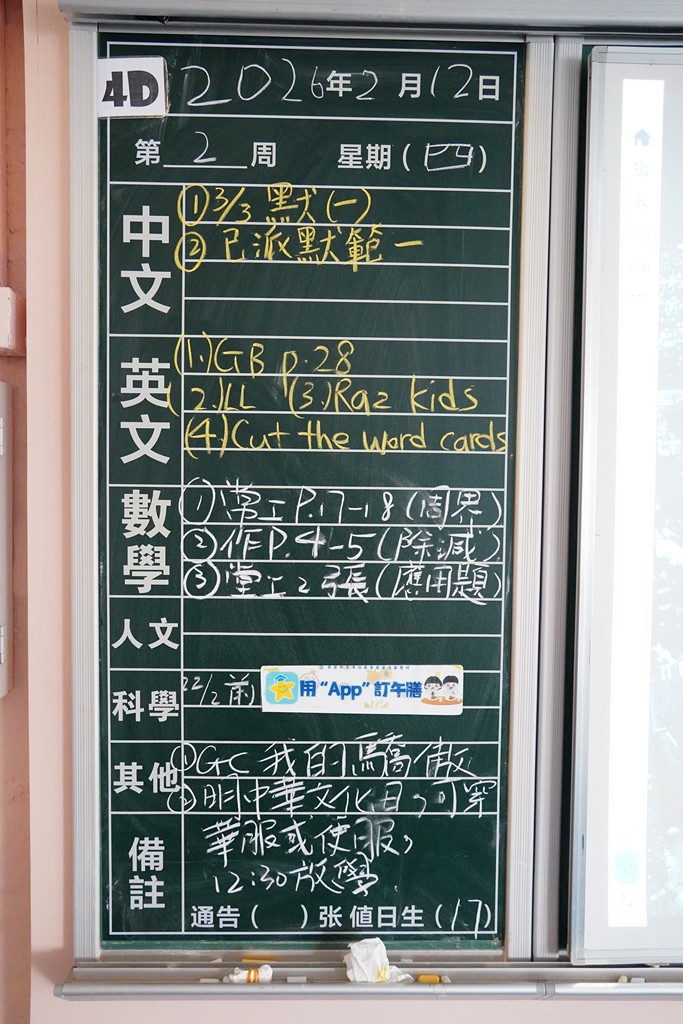 4D 2026年2月12日
第2周 星期(四)
中文
①3/3 默(一)
②已派默範一
英文
(1.)GB p.28
(2.)LL (3.)Raz kids
(4.)Cut the word cards
數學
①堂工P.17-18(周界)
②作P.4-5(除減)
③堂工2張(應用題)
人文
科學
22/2前
用“App”訂午膳
其他
①GC 我的驕傲
②明中華文化日,可穿
備註
華服或便服,
12:30放學.
通告( )张 值日生(17)